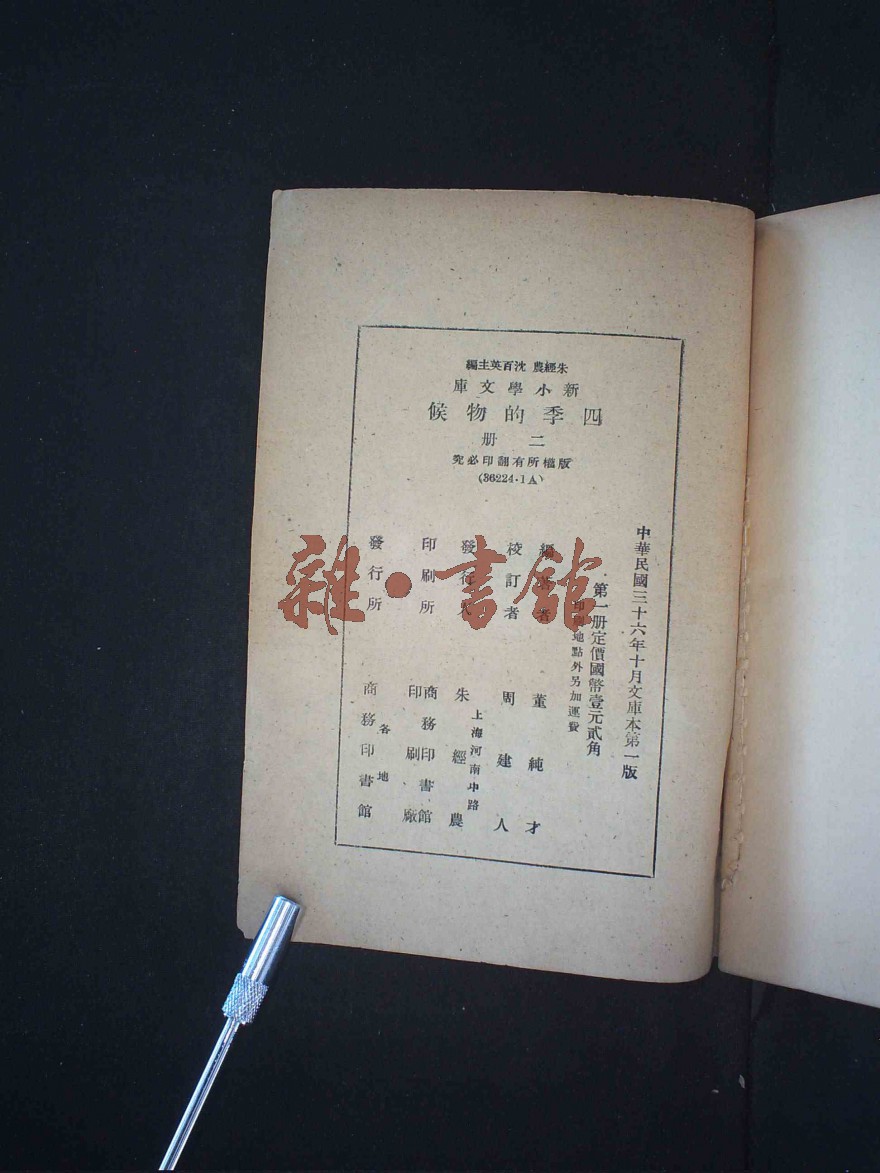 朱經農 沈百英主編
新小學文庫
四季的物候
二冊
版權所有翻印必究
(36224·1A)
中華民國三十六年十月文庫本第一版
第一册定價國幣壹元貳角
印刷地點外另加運費
董純才
校訂者 周建人
發行人 朱經農
上海河南中路
印刷所 商務印書館
印刷廠
發行所 各地
商務印書館
雜·書館